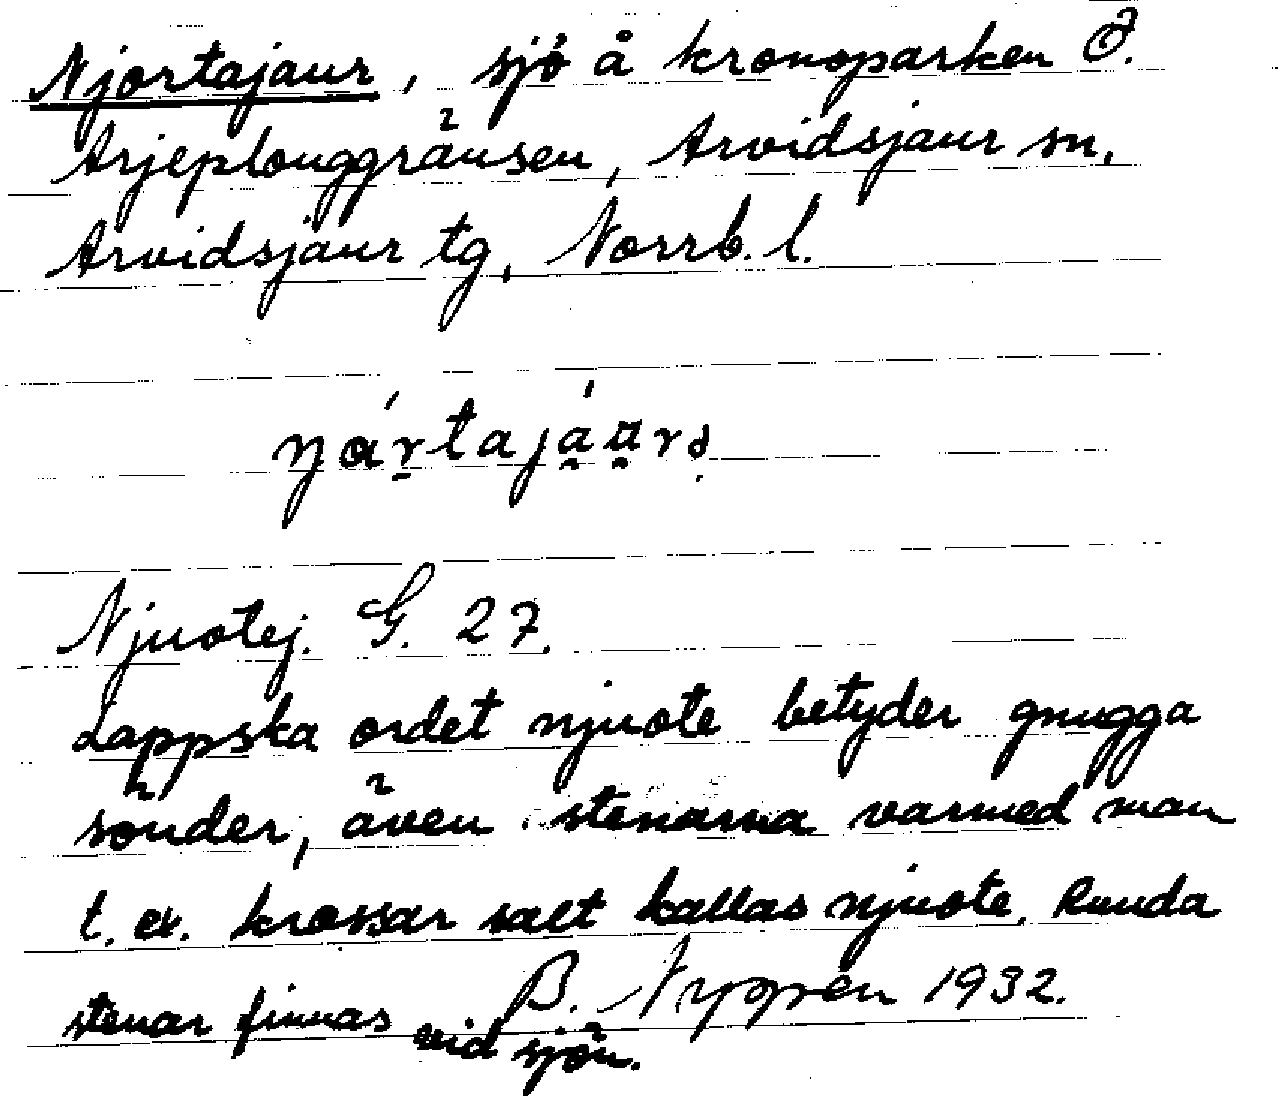 Njortajaur, sjö å kronoparken Ö.
Arjeplouggränsen, Arvidsjaur sn,
Arvidsjaur tg, Norrb. l.
Njuotej. G. 27.
Lappska ordet njuote betyder gnugga
sönder, även stenarna varmed man
t. ex. krossar salt kallas njuote. Runda
stenar finnas vid sjön.
B. Nyppén 1932.